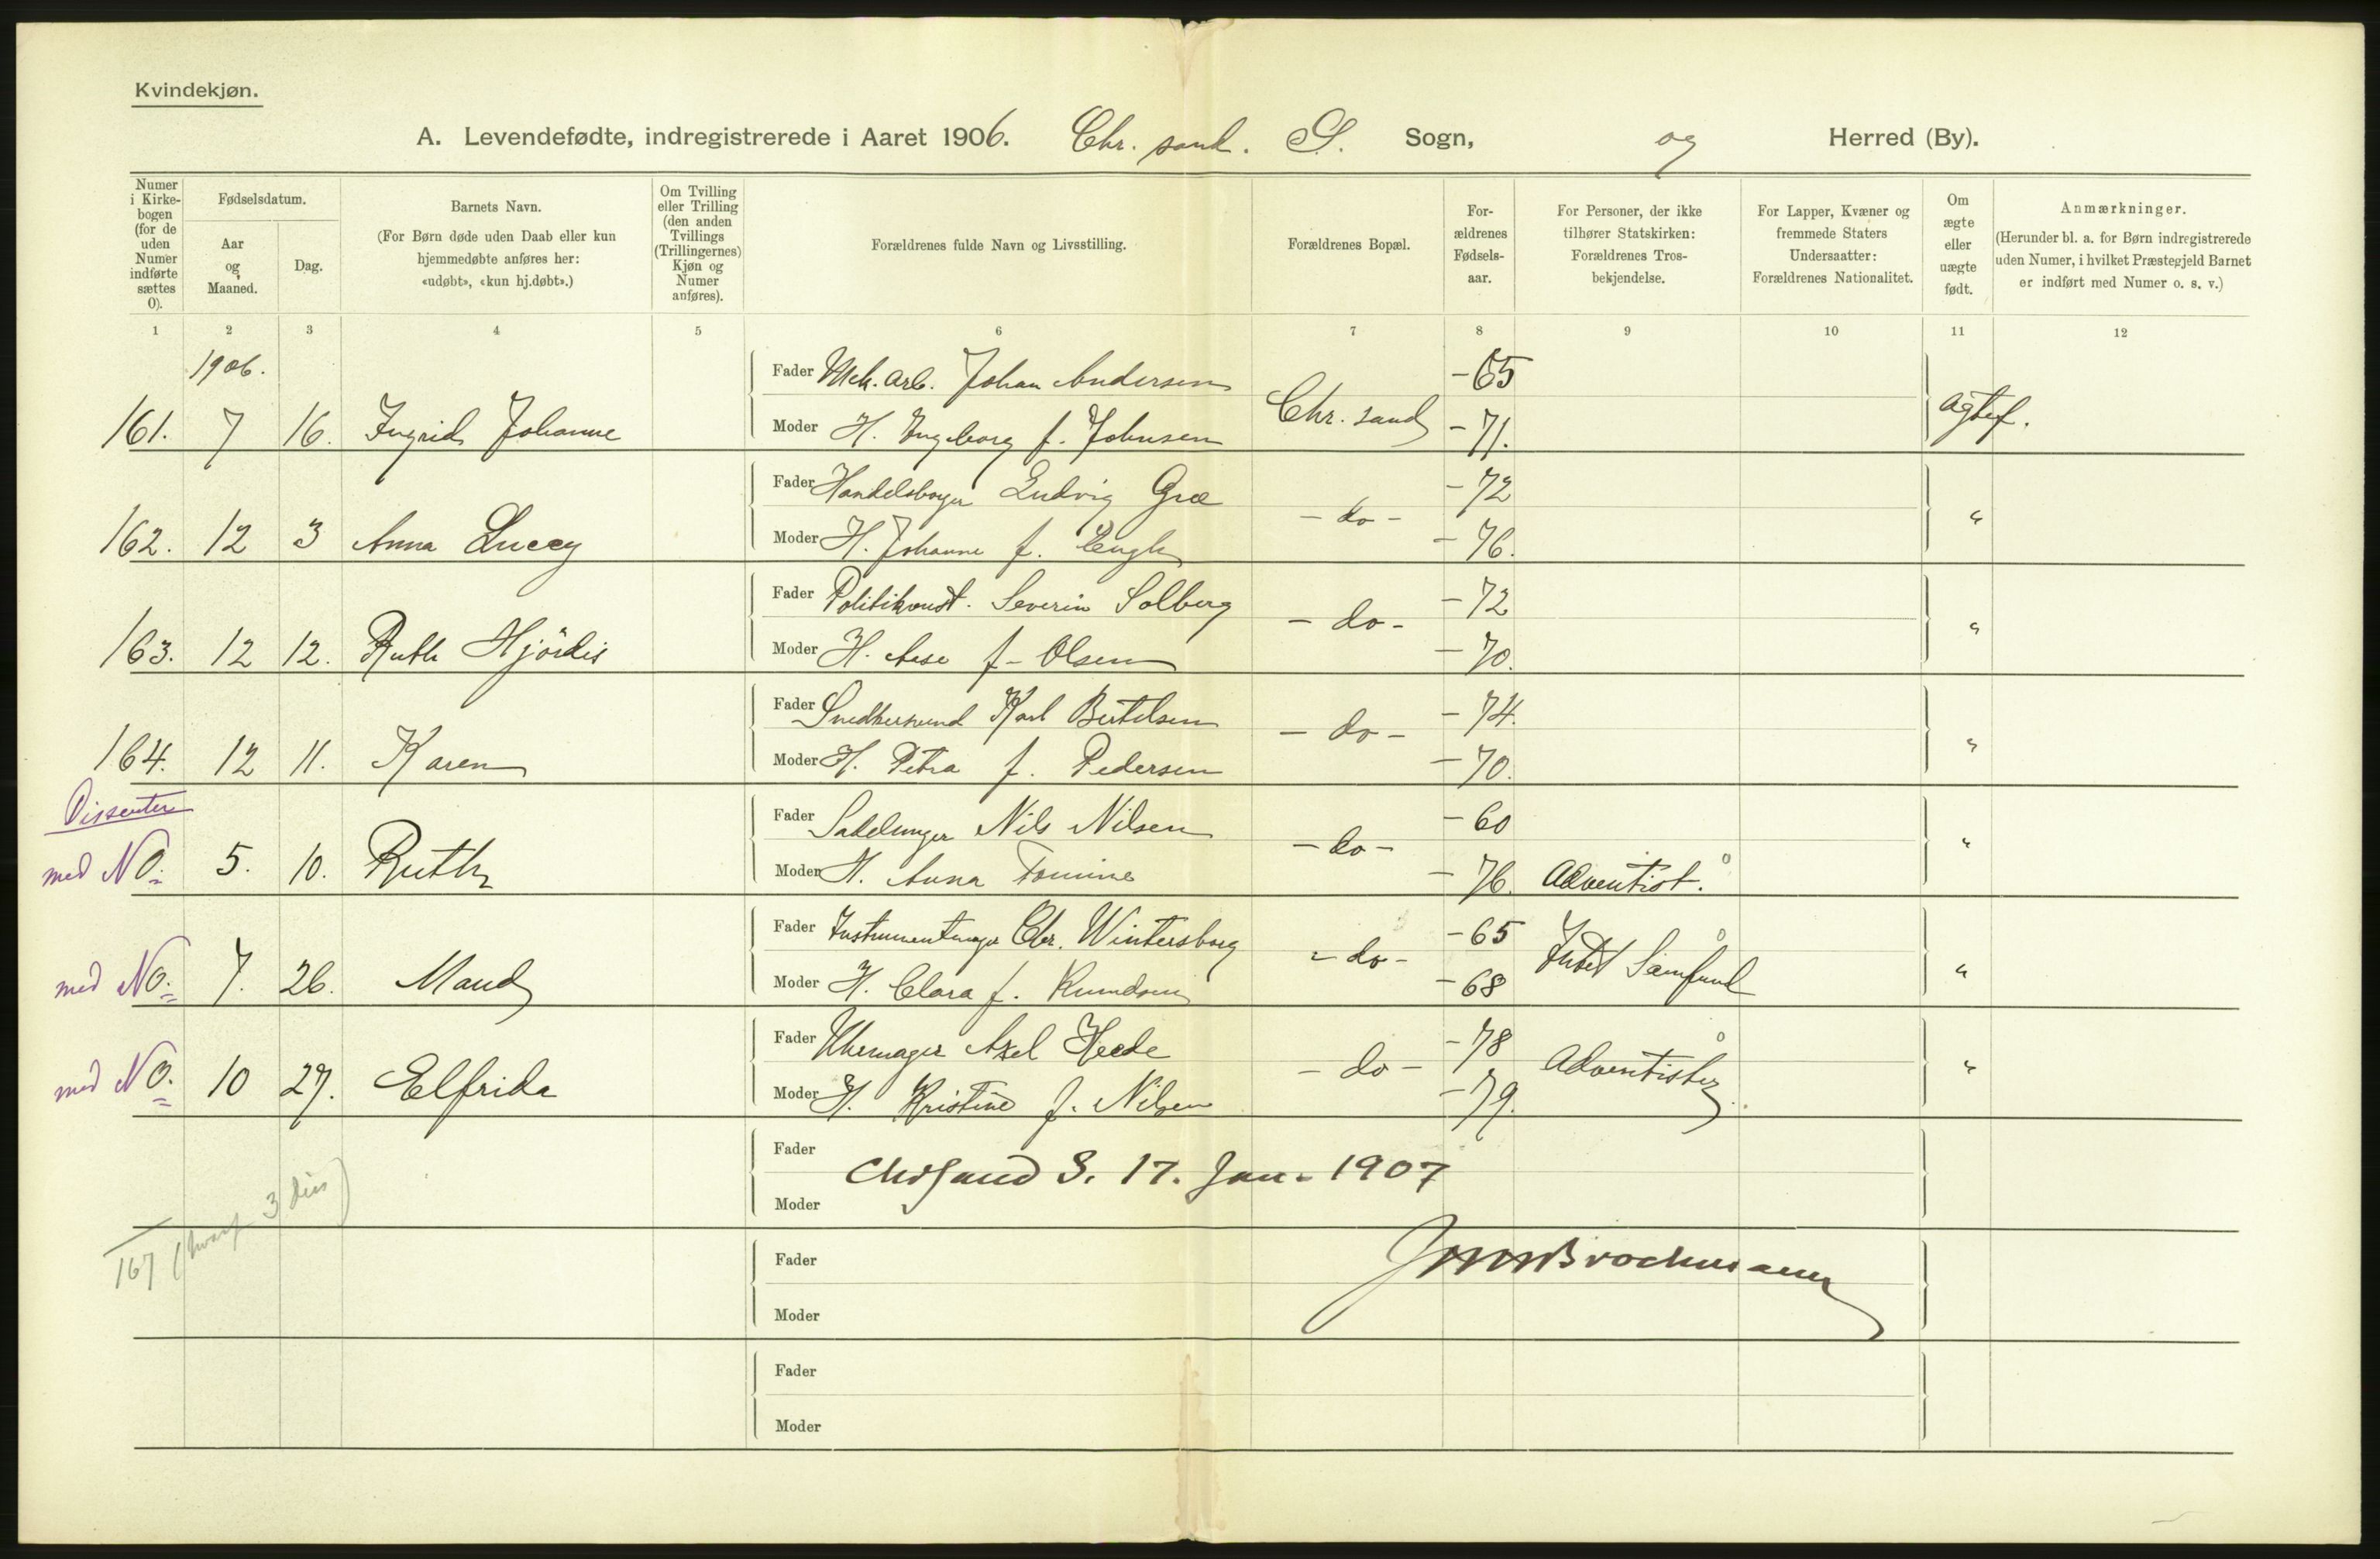 Kvindekjøn.
A. Levendefødte, indregistrerede i Aaret 1906. Chr. sand. S. Sogn, og Herred (By).
Numer i Kirke-bogen (for de uden Numer indførte sættes 0).
Fødselsdatum.
Aar og Maaned.
Dag.
Barnets Navn.
(For Børn døde uden Daab eller kun hjemmedøbte anføres her: «udøbt», «kun hj.døbt».)
Om Tvilling eller Trilling (den anden Tvillings (Trillingernes) Kjøn og Numer anføres).
Forældrenes fulde Navn og Livsstilling.
Forældrenes Bopæl.
For-ældrenes Fødsels-aar.
For Personer, der ikke tilhører Statskirken: Forældrenes Tros-bekjendelse.
For Lapper, Kvæner og fremmede Staters Undersaatter: Forældrenes Nationalitet.
Om ægte eller uægte født.
Anmærkninger.
(Herunder bl. a. for Børn indregistrerede uden Numer, i hvilket Præstegjeld Barnet er indført med Numer o. s. v.)
1 2 3 4 5 6 7 8 9 10 11 12
1906.
Fader Mek. arb. Johan Andersen - 65
161. 7 16. Ingrid Johanne Moder H. Ingeborg f. Johnsen Chr. sand - 71. ægtef.
Fader Handelsborger Ludvig Gree - 72
162. 12 3 Anna Luccy Moder H. Johanne f. Engh - do - - 76. "
Fader Politikonst. Severin Solberg - 72
163. 12 12. Ruth Hjördis Moder H. Aase f. Olsen - do - - 70. "
Fader Snedkersvend Karl Bertelsen - 74.
164. 12 11. Karen Moder H. Petra f. Pedersen - do - - 70. "
Dissentere
Fader Sadelmager Nils Nilsen - 60
med No. 5. 10. Ruth Moder H. Anna Tomine - do - - 76. Adventist. "
Fader Instrumentmager Chr. Wintersborg - 65
med No. 7. 26. Maud Moder H. Clara f. Knudsen - do - - 68 Intet Samfund "
Fader Uhrmager Axel Heede - 78
med No. 10 27. Elfrida Moder H. Kristine f. Nilsen - do - - 79. Adventister "
Fader
Chrsand S. 17. Jan. 1907
Moder
167 (hvoraf 3 diss)
Fader
Brochmann
Moder
Fader
Moder